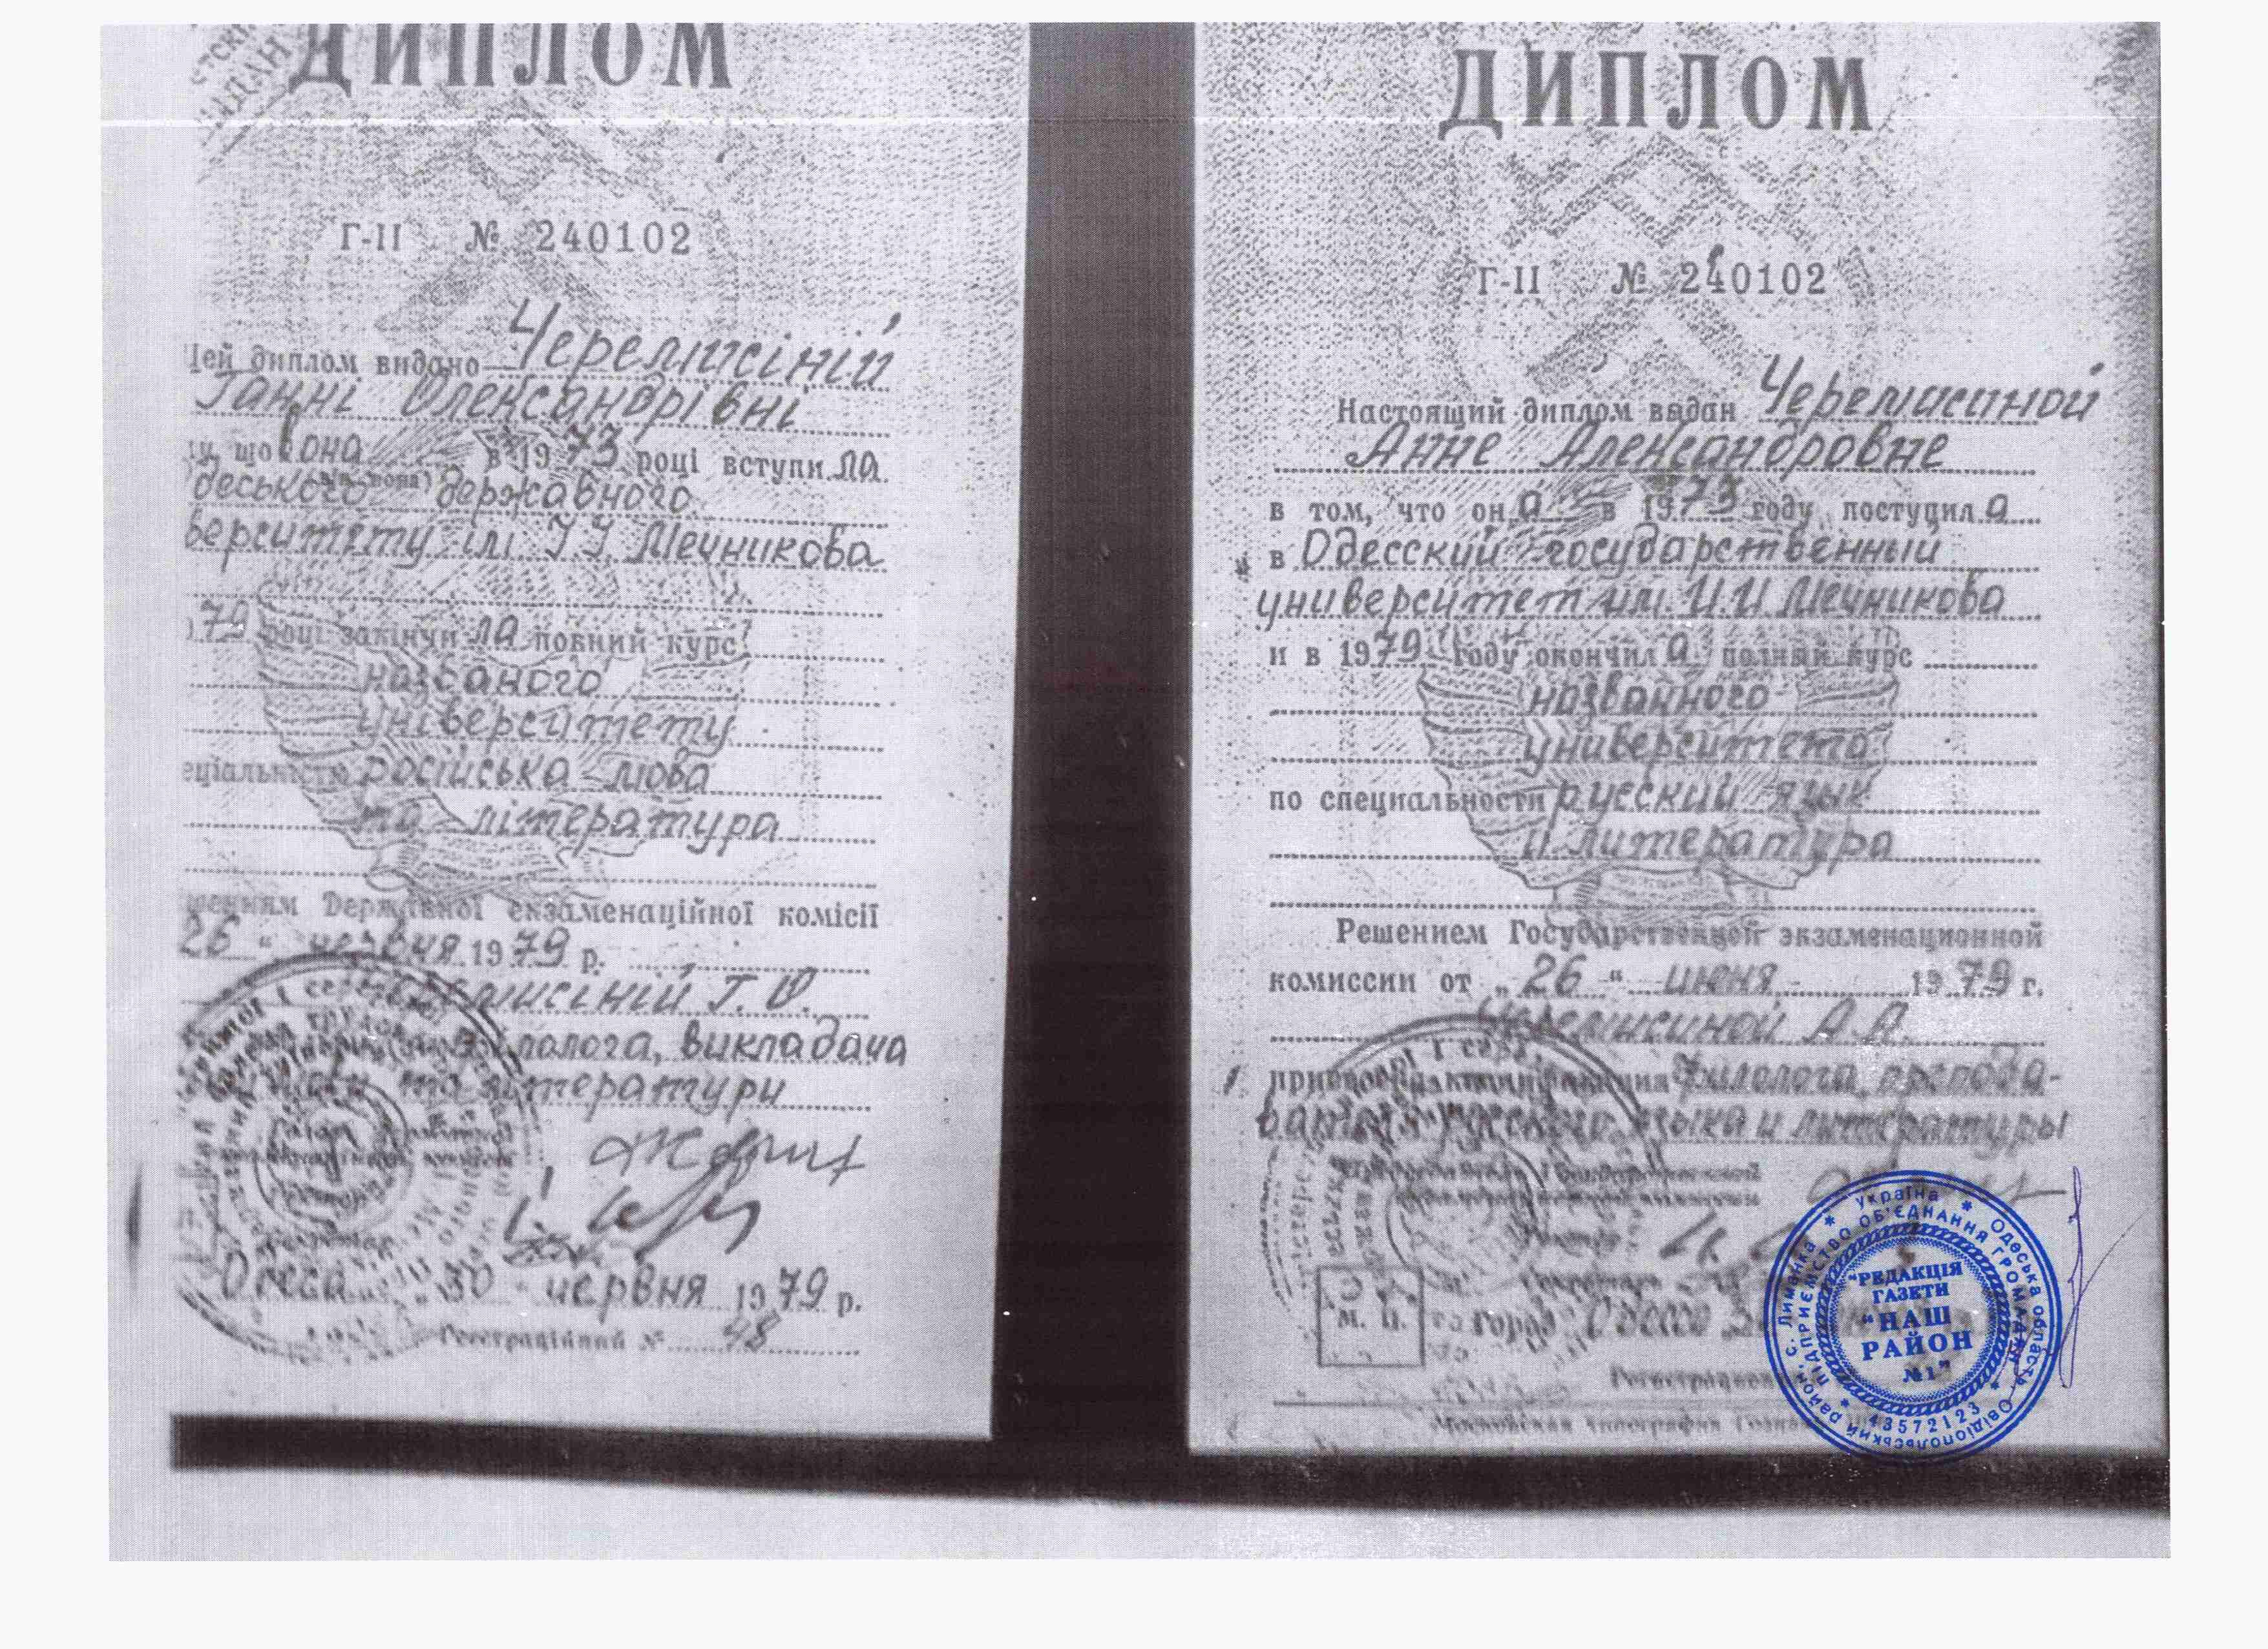 ДИПЛОМ
Г-II № 240102
Цей диплом видано Черемисіній
Ганні Олександрівні
що вона в 1973 році вступила
державного
ім. І.І. Мечникова
79 році закінчила повний курс
названого
університету
російська мова
та література
Державної екзаменаційної комісії
26 " червня 1979 р.
Г. О.
викладача
та літератури
Одеса " 30 " червня 1979 р.
Реєстраційний № 48
ДИПЛОМ
Г-II № 240102
Настоящий диплом выдан Черемисиной
Анне Александровне
в том, что она в 1973 году поступила
в Одесский государственный
университет им. И.И Мечникова
и в 1979 году окончила полный курс
названного
университета
по специальности русский язык
и литература
Решением Государственной экзаменационной
комиссии от " 26 " июня 1979 г.
Черемисиной А.А.
филолога, препода-
языка и литературы
М. П.
Город Одесса
Московская типография
Україна * Одеська область, Овідіопольський район, с. Лиманка *
ПІДПРИЄМСТВО ОБ'ЄДНАННЯ ГРОМАДЯН
"РЕДАКЦІЯ
ГАЗЕТИ
"НАШ
РАЙОН
№1"
* 43572123 *